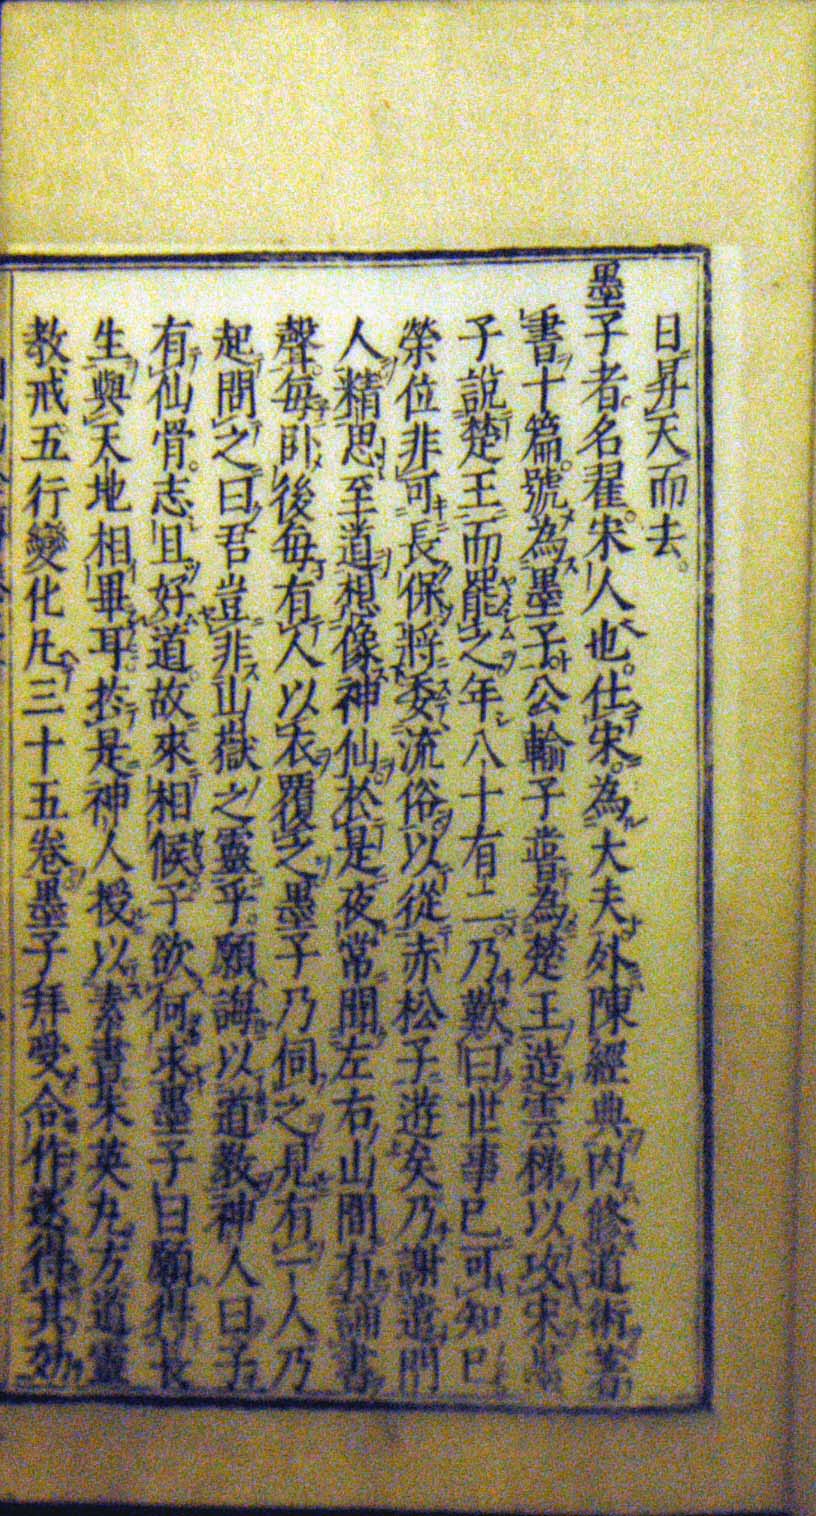 日昇天而去。
墨子者。名翟。宋人也。仕宋。為大夫外陳經典内修道術著
書十篇。號為墨子公輸子甞為楚王造雲梯以攻宋墨
子說楚王而罷之年八十有二乃歎曰世事已可知已
榮位非可長保將委流俗以從赤松子遊矣乃謝遣門
人精思至道想像神仙於是夜常聞左右山間有誦書
聲。每卧後每有人以衣覆之墨子乃伺之見有一人乃
起問之曰君豈非山嶽之靈乎。願誨以道教神人曰子
有仙骨。志且好道故來相候子欲何求墨子曰願得長
生與天地相畢耳於是神人授以素書朱英丸方道靈
教戒五行變化凡三十五卷墨子拜受合作遂得其効